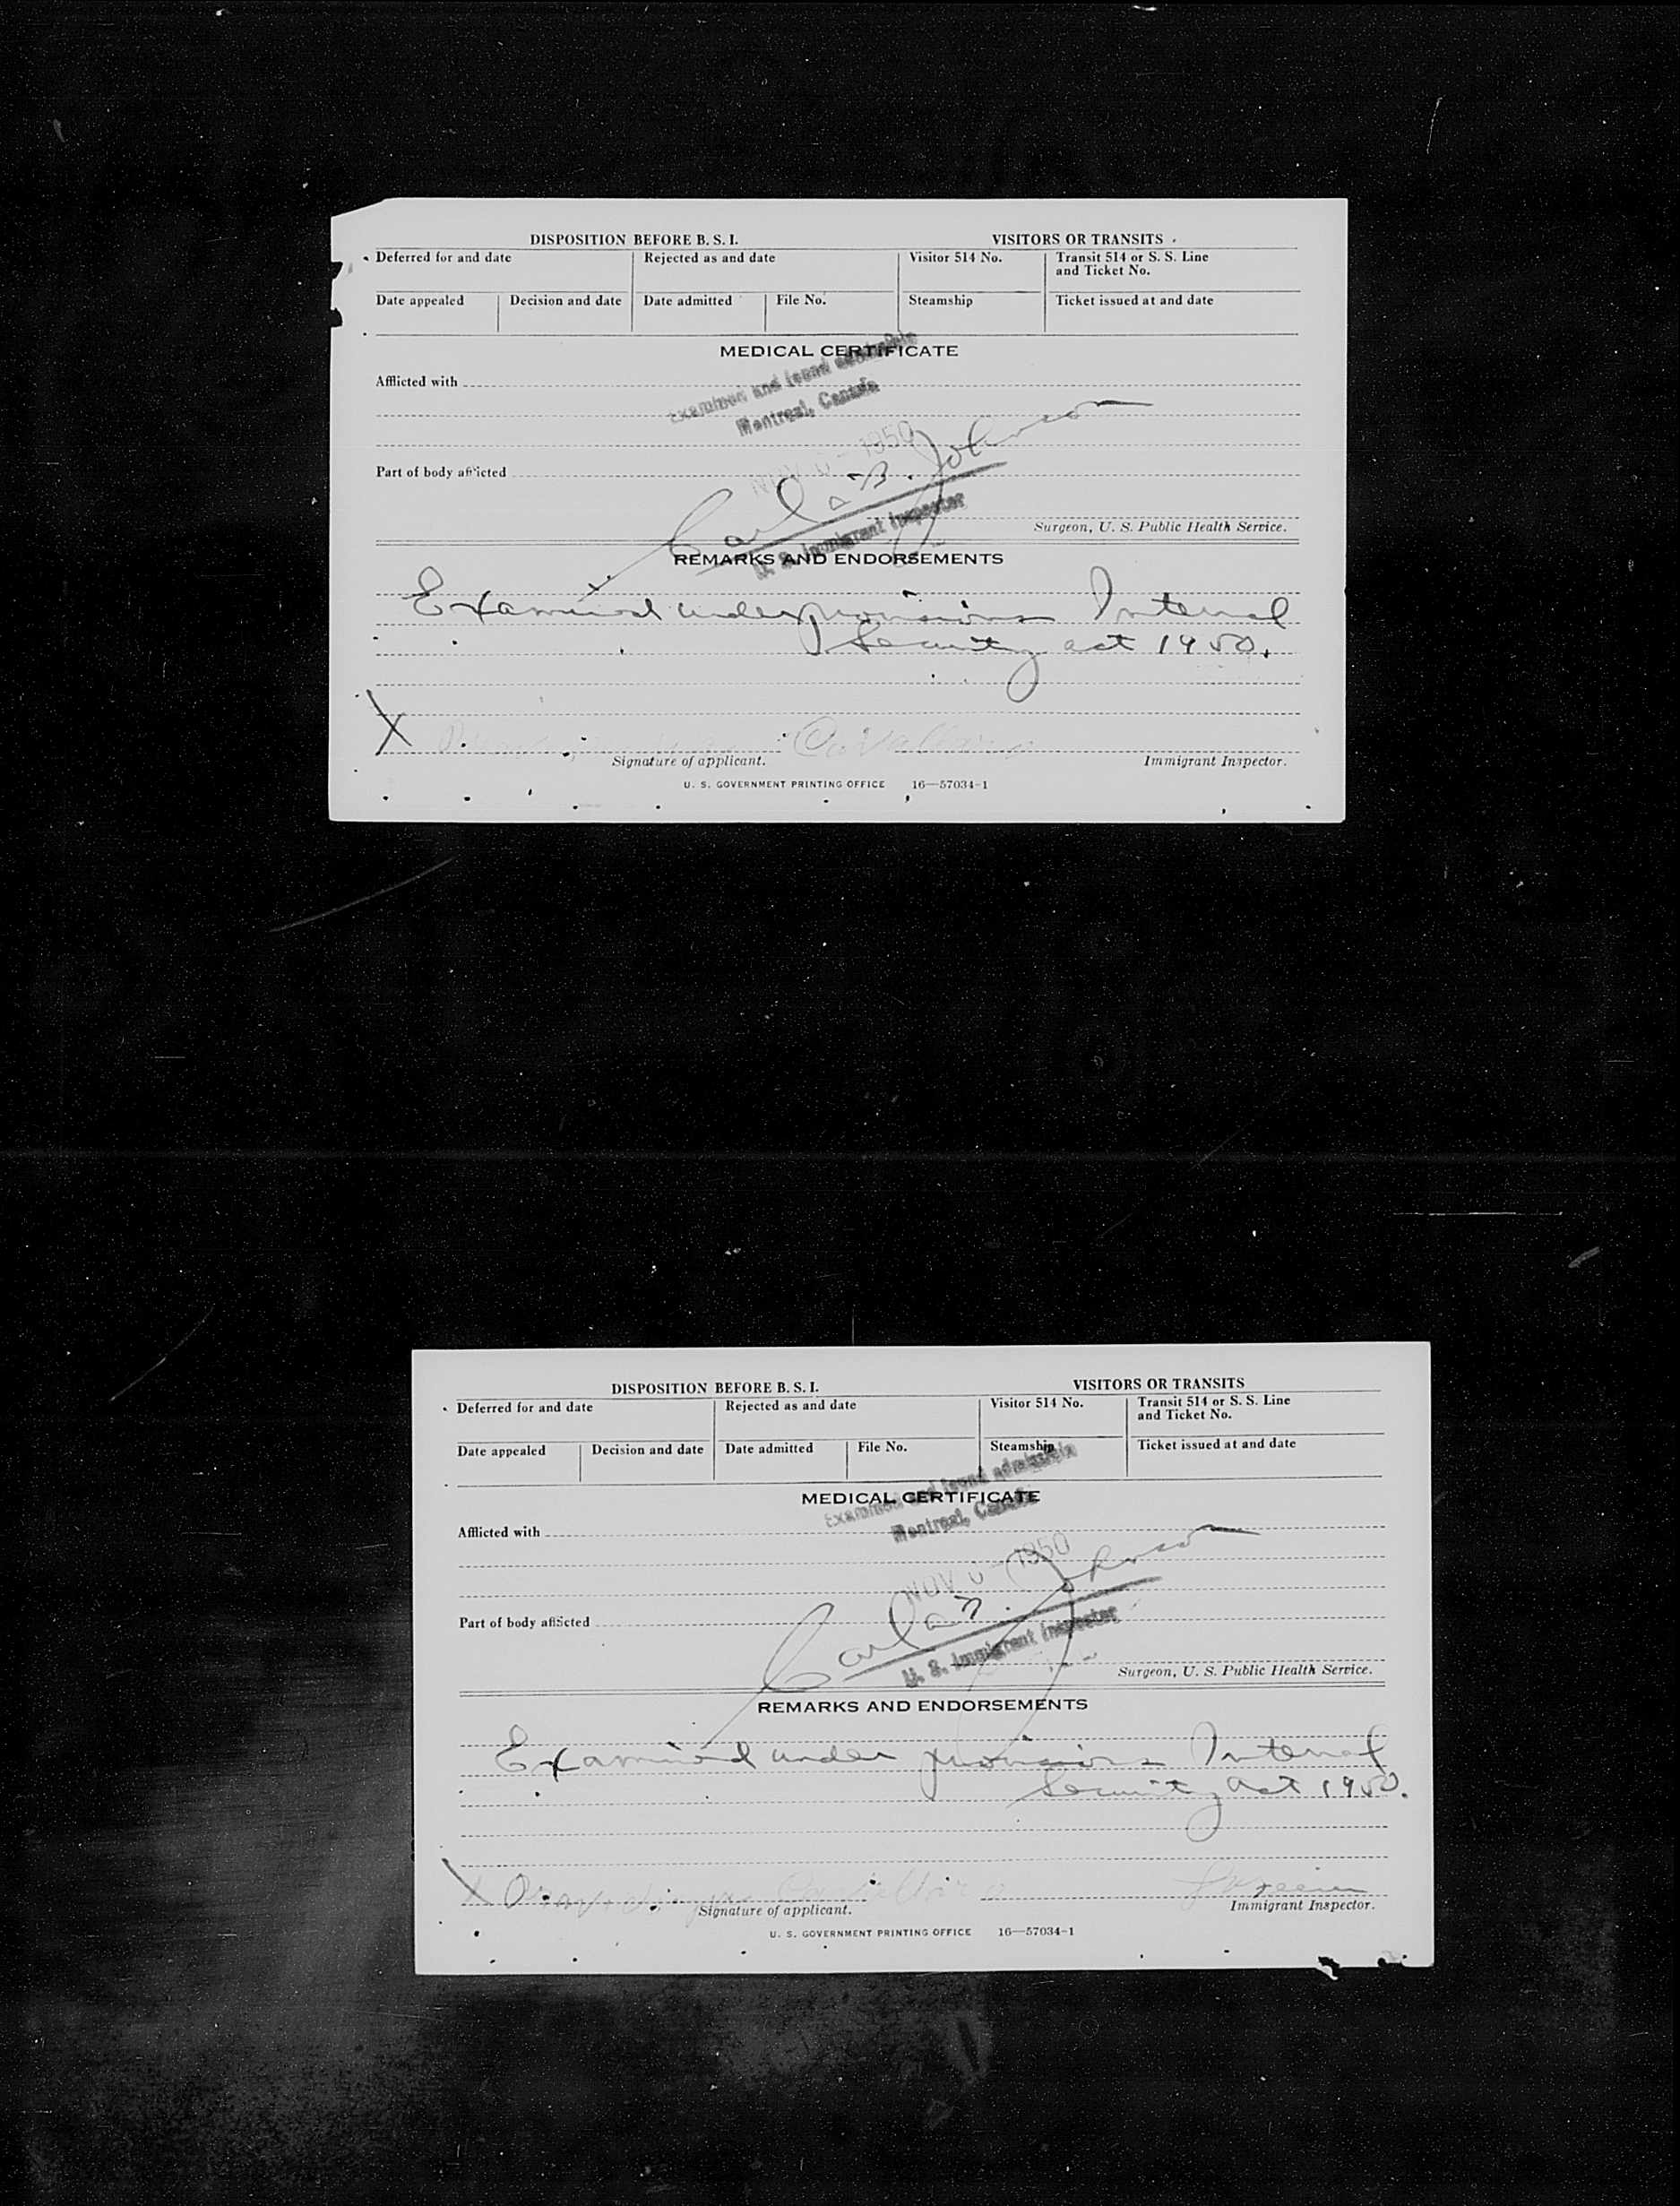 DISPOSITION BEFORE B. S. I.
VISITORS OR TRANSITS
Deferred for and date
Rejected as and date
Visitor 514 No.
Transit 514 or S. S. Line
and Ticket No.
Date appealed
Decision and date
Date admitted
File No.
Steamship
Ticket issued at and date
MEDICAL CERTIFICATE
Examined and found admissible
Montreal, Canada
Afflicted with
1950
Part of body afflicted
Johnson
U. S. Immigrant Inspector
Surgeon, U. S. Public Health Service.
REMARKS AND ENDORSEMENTS
Examined under provisions Internal
Security act 1950.
X
Signature of applicant.
Immigrant Inspector.
U. S. GOVERNMENT PRINTING OFFICE 16—57034-1
DISPOSITION BEFORE B. S. I.
VISITORS OR TRANSITS
Deferred for and date
Rejected as and date
Visitor 514 No.
Transit 514 or S. S. Line
and Ticket No.
Date appealed
Decision and date
Date admitted
File No.
Steamship
Ticket issued at and date
Examined and found admissible
MEDICAL CERTIFICATE
Montreal, Canada
Afflicted with
NOV 1950
Part of body afflicted
Johnson
U. S. Immigrant Inspector
Surgeon, U. S. Public Health Service.
REMARKS AND ENDORSEMENTS
Examined under provisions Internal
Security act 1950.
Signature of applicant.
Immigrant Inspector.
U. S. GOVERNMENT PRINTING OFFICE 16—57034-1